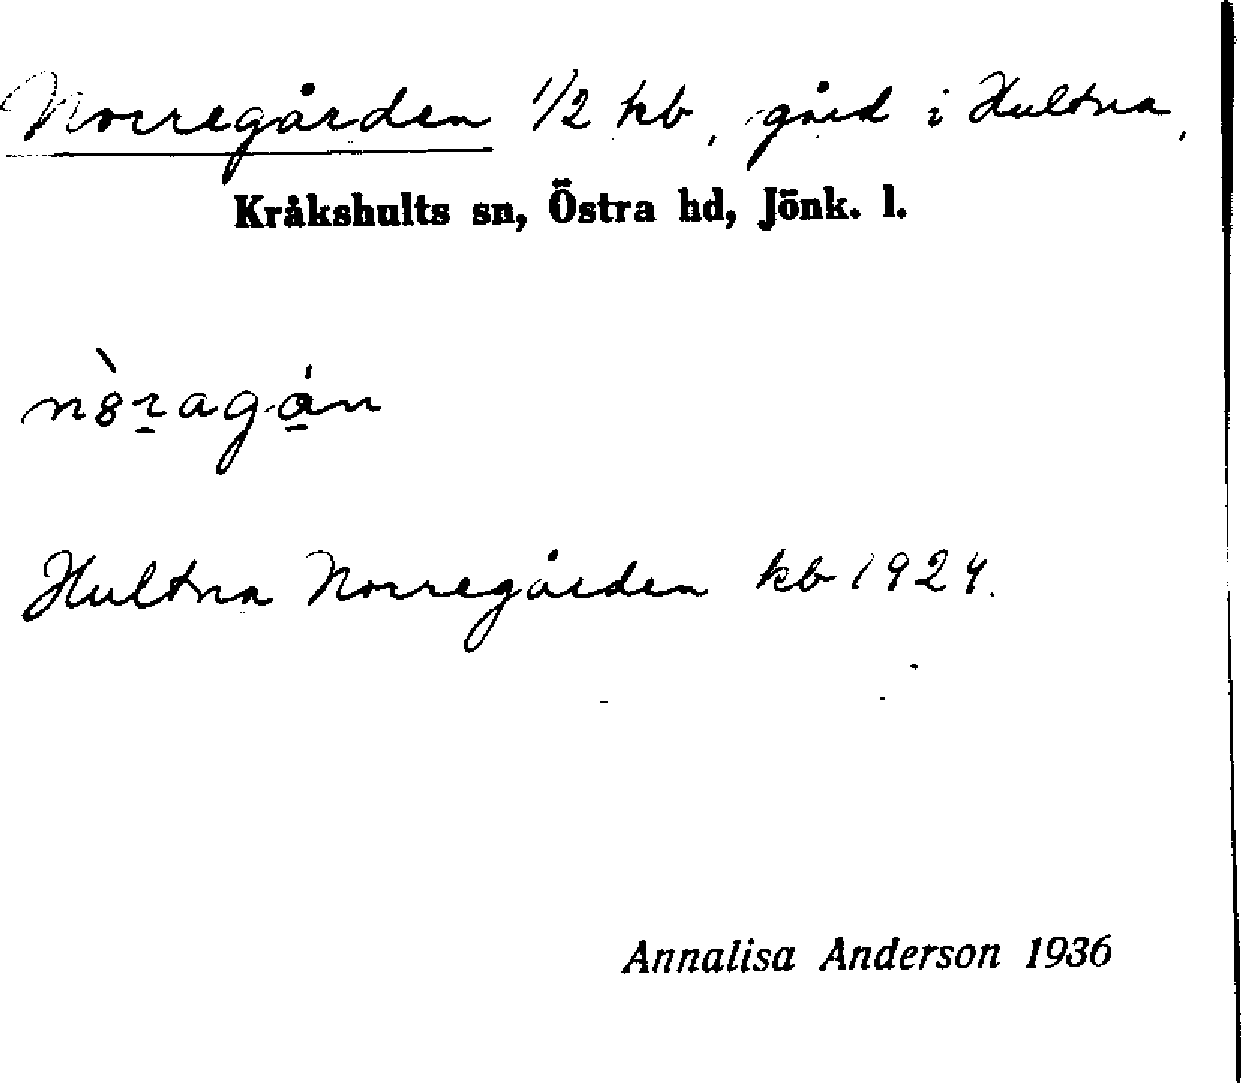 Norregården 1/2 kb, gård i Hultna,
Kråkshults sn, Östra hd, Jönk. l.
Hultna Norregården kb 1924.
Annalisa Anderson 1936